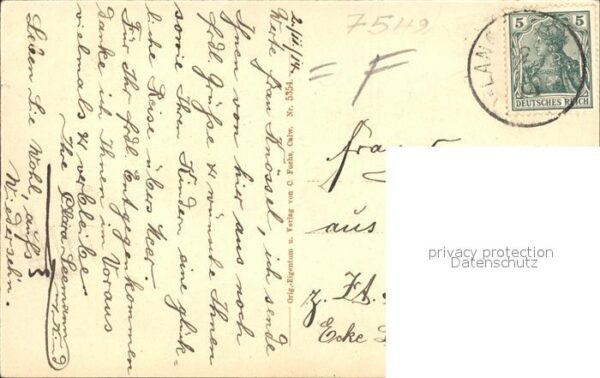 2./III./14.
Werte Frau Knössel, ich sende
Ihnen von hier aus noch
frdl. Grüße & wünsche Ihnen
sowie Ihren Kindern eine glük-
liche Reise übers Meer.
Für Ihr frdl. Entgegenkommen
danke ich Ihnen im Voraus
vielmals & verbleibe
Ihre Clara Seemann
u. Kind
Leben Sie Wohl, auf's
Wiederseh'n.
Orig.-Eigentum u. Verlag von C. Fuchs, Calw. Nr. 5354.
7549
= F
5 5
DEUTSCHES REICH
Frau
aus
z. Zt.
Ecke
privacy protection
Datenschutz